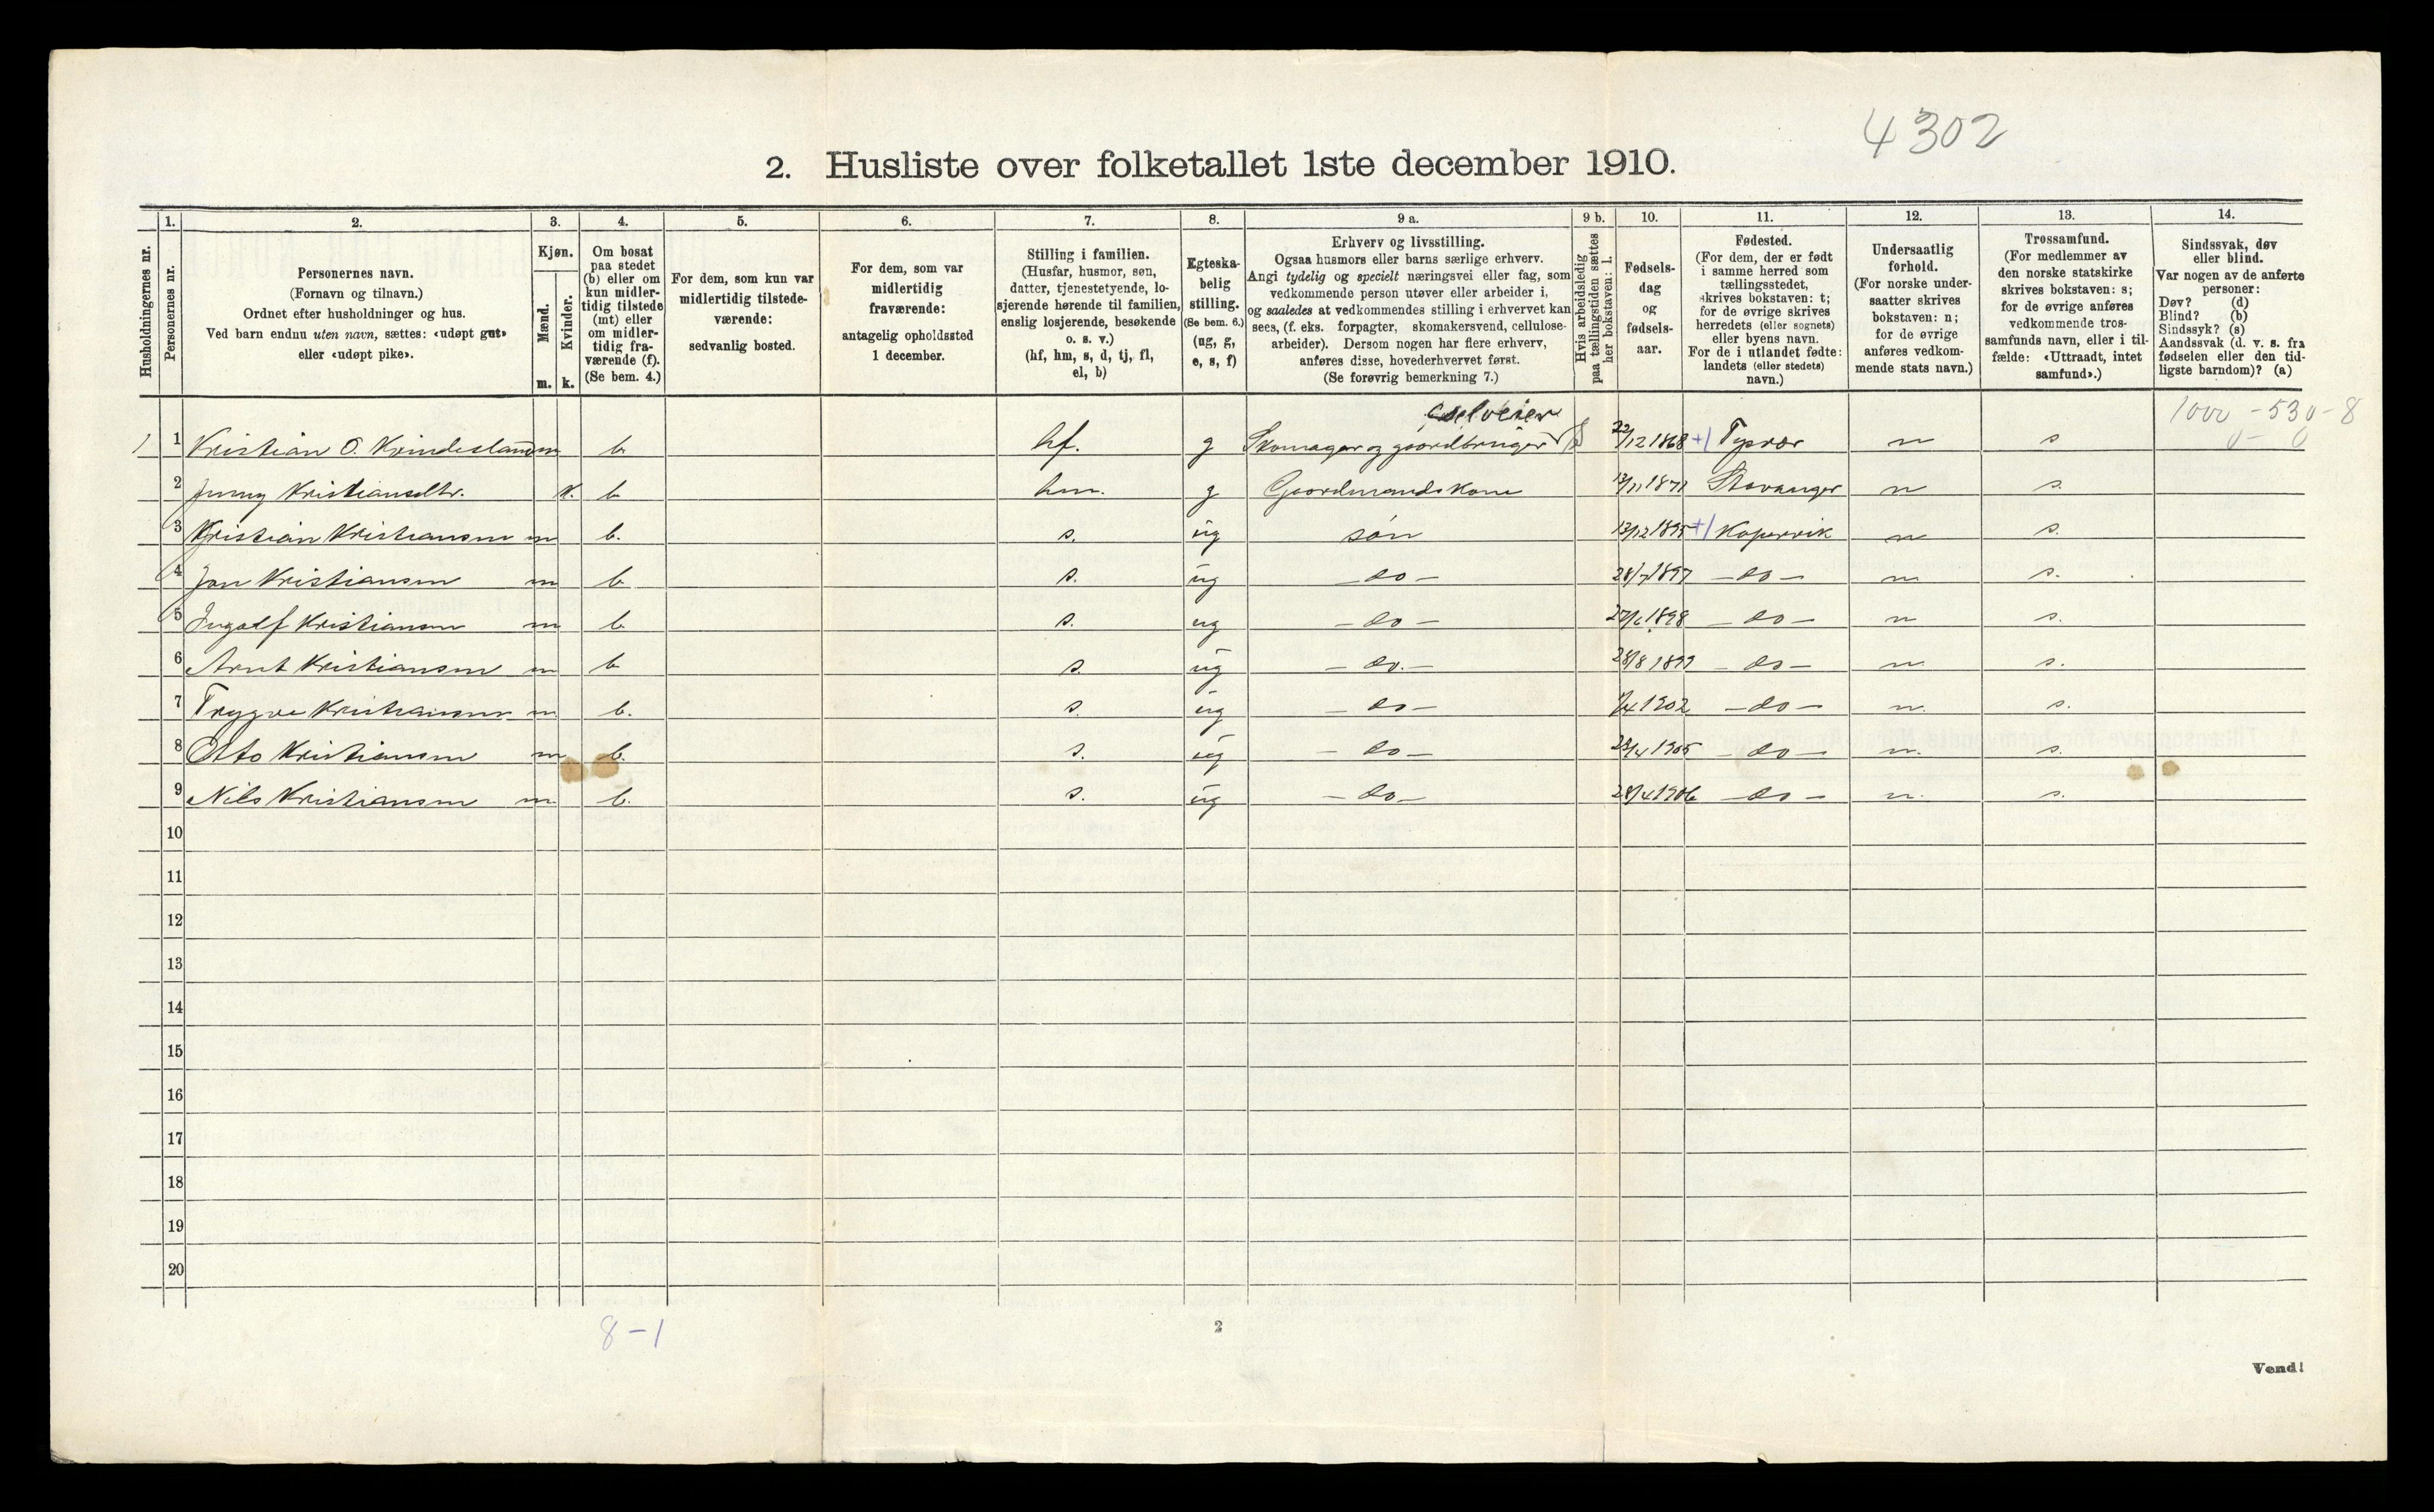 4302
2. Husliste over folketallet 1ste december 1910.
Husholdningernes nr.
1. Personernes nr.
2. Personernes navn.
(Fornavn og tilnavn.)
Ordnet efter husholdninger og hus.
Ved barn endnu uten navn, sættes: «udøpt gut»
eller «udøpt pike».
3. Kjøn.
Mænd. m.
Kvinder. k.
4. Om bosat
paa stedet
(b) eller om
kun midler-
tidig tilstede
(mt) eller
om midler-
tidig fra-
værende (f).
(Se bem. 4.)
5. For dem, som kun var
midlertidig tilstede-
værende:
sedvanlig bosted.
6. For dem, som var
midlertidig
fraværende:
antagelig opholdssted
1 december.
7. Stilling i familien.
(Husfar, husmor, søn,
datter, tjenestetyende, lo-
sjerende hørende til familien,
enslig losjerende, besøkende
o. s. v.)
(hf, hm, s, d, tj, fl,
el, b)
8. Egteska-
belig
stilling.
(Se bem. 6.)
(ug, g,
e, s, f)
9 a. Erhverv og livsstilling.
Ogsaa husmors eller barns særlige erhverv.
Angi tydelig og specielt næringsvei eller fag, som
vedkommende person utøver eller arbeider i,
og saaledes at vedkommendes stilling i erhvervet kan
sees, (f. eks. forpagter, skomakersvend, cellulose-
arbeider). Dersom nogen har flere erhverv,
anføres disse, hovederhvervet først.
(Se forøvrig bemerkning 7.)
9 b. Hvis arbeidsledig
paa tællingstiden sættes
her bokstaven: l.
10. Fødsels-
dag
og
fødsels-
aar.
11. Fødested.
(For dem, der er født
i samme herred som
tællingsstedet,
skrives bokstaven: t;
for de øvrige skrives
herredets (eller sognets)
eller byens navn.
For de i utlandet fødte:
landets (eller stedets)
navn.)
12. Undersaatlig
forhold.
(For norske under-
saatter skrives
bokstaven: n;
for de øvrige
anføres vedkom-
mende stats navn.)
13. Trossamfund.
(For medlemmer av
den norske statskirke
skrives bokstaven: s;
for de øvrige anføres
vedkommende tros-
samfunds navn, eller i til-
fælde: «Uttraadt, intet
samfund».)
14. Sindssvak, døv
eller blind.
Var nogen av de anførte
personer:
Døv? (d)
Blind? (b)
Sindssyk? (s)
Aandssvak (d. v. s. fra
fødselen eller den tid-
ligste barndom)? (a)
selveier 1000 - 530 - 8
1 1 Kristian O. Kvindesland m b. hf. g Skomager og gaardbruger 22/12 1868 +/ Tysvær n s 0 - 0
2 Jenny Kristiansdtr. k. b hm. g Gaardmandskone 13/11 1871 Stavanger n s.
3 Kristian Kristiansen m b. s. ug søn 13/12 1895 +/ Kopervik n s.
4 Jon Kristiansen m b s. ug - do - 28/7 1897 - do - n s.
5 Ingolf Kristiansen m b s. ug - do - 1898 - do - n s.
6 Arnt Kristiansen m b s. ug - do. - 28/8 1899 - do - n s.
7 Trygve Kristiansen m b. s. ug - do - 1902 - do - n. s.
8 Otto Kristiansen m b. s. ug - do - 1905 - do - n. s.
9 Nils Kristiansen m b. s. ug - do - 28/4 1906 - do - n. s.
10
11
12
13
14
15
16
17
18
19
20
8-1
2
Vend!